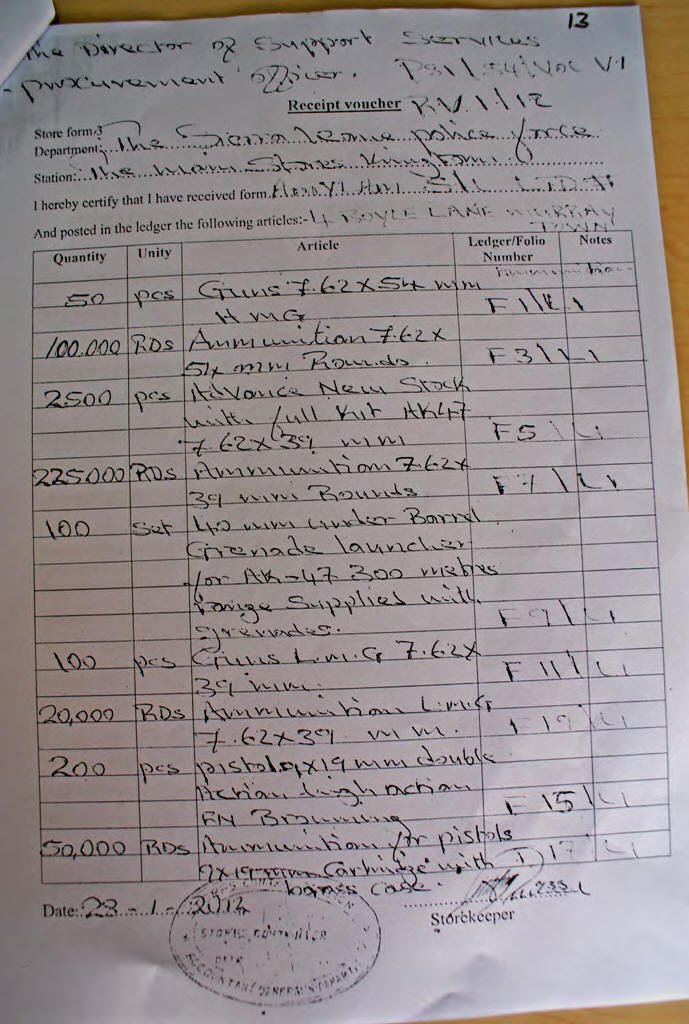 13
The Director of Support Services
- procurement officer. PSI/54/Vol VI
Receipt voucher RV.1/12
Store form-3
Department: The Sierra Leone police force
Station: The Main Stores Kingtom
I hereby certify that I have received form LTD
And posted in the ledger the following articles:- 4 BOYLE LANE MURRAY
TOWN
Quantity Unity Article Ledger/Folio Number Notes
Ammunition-
50 pcs Guns 7.62x54 mm
HMG F1/L1
100.000 RDs Ammunition 7.62x
54 mm Rounds. F3/L1
2500 pcs Advance New Stock
with full Kit AK47
7.62x39 mm F5/L1
225.000 RDs Ammunition 7.62x
39 mm Rounds F7/L1
100 Set 40 mm under Barrel
Grenade launcher
for AK-47 300 metres
range supplied with
grenades. F9/L1
100 pcs Guns L.M.G 7.62x
39 mm. F11/L1
20,000 RDs Ammunition L.M.G
7.62x39 mm.
200 pcs pistols 9x19 mm double
Action high action
FN Browning F15/L1
50,000 RDs Ammunition for pistols
9x19mm Cartridge with 17
case.
Date: 23-1-2012
Storekeeper
ACCOUNTANT GENERAL'S DEPART